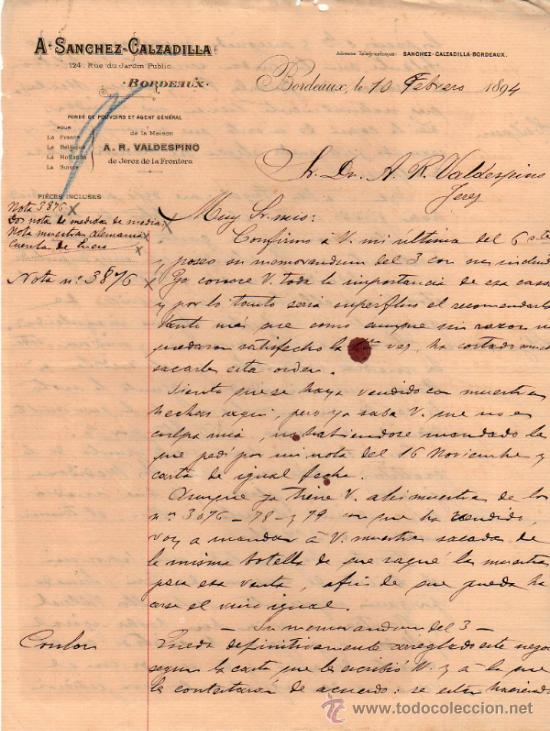 A. SANCHEZ-CALZADILLA
124, Rue du Jardin Public
BORDEAUX
Adresse Télégraphique: SANCHEZ-CALZADILLA-BORDEAUX.
Bordeaux, le 10 Febrero 1894
FONDÉ DE POUVOIRS ET AGENT GÉNÉRAL
POUR
La France
La Belgique
La Hollande
La Suisse
de la Maison
A. R. VALDESPINO
de Jerez de la Frontera
Sr. Dn. A. R. Valdespino
Jerez
PIÈCES INCLUSES
Nota 3876
nota de medidas de medias
Nota muestras Alemania
Cuenta de
Nota nº 3876
Muy Sr. mio:
Confirmo á V. mi última del 6
y poseo su memorandum del 3 con
Ya conoce V. toda la importancia de esa casa
y por lo tanto seria superfluo el recomendarle
tanto mas que como aunque sin razon no
quedaron satisfechos la vez, ha costado mucho
sacarles esta orden.
Siento que se haya vendido con muestras
hechas aqui, pero ya sabe V. que no es
culpa mia, no habiendose mandado la
que pedí por mi nota del 16 Noviembre y
carta de igual fecha.
Aunque ya tiene V. ahi muestra de los
nos 3076 - 78 - y 79 con que ha vendido,
voy a mandar á V. muestra sacada de
la misma botella de que saqué la muestra
para esa venta, afin de que pueda ha
cerse el vino igual.
Su memorandum del 3 -
Coulon
Queda definitivamente arreglado este nego
segun la carta que le escribió V. y á la que
la contestarán de acuerdo: se están haciendo
todocoleccion.net